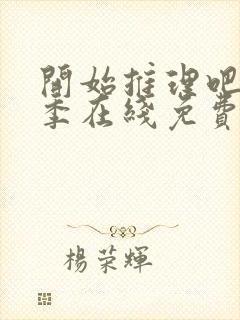 開始推理吧
季在綫免費
楊荣輝